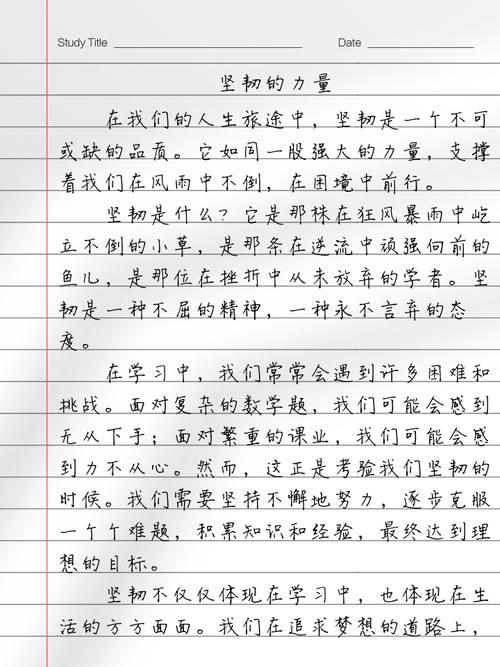 Study Title
Date
坚韧的力量
在我们的人生旅途中，坚韧是一个不可
或缺的品质。它如同一股强大的力量，支撑
着我们在风雨中不倒，在困境中前行。
坚韧是什么？它是那株在狂风暴雨中屹
立不倒的小草，是那条在逆流中顽强向前的
鱼儿，是那位在挫折中从未放弃的学者。坚
韧是一种不屈的精神，一种永不言弃的态
度。
在学习中，我们常常会遇到许多困难和
挑战。面对复杂的数学题，我们可能会感到
无从下手；面对繁重的课业，我们可能会感
到力不从心。然而，这正是考验我们坚韧的
时候。我们需要坚持不懈地努力，逐步克服
一个个难题，积累知识和经验，最终达到理
想的目标。
坚韧不仅仅体现在学习中，也体现在生
活的方方面面。我们在追求梦想的道路上，